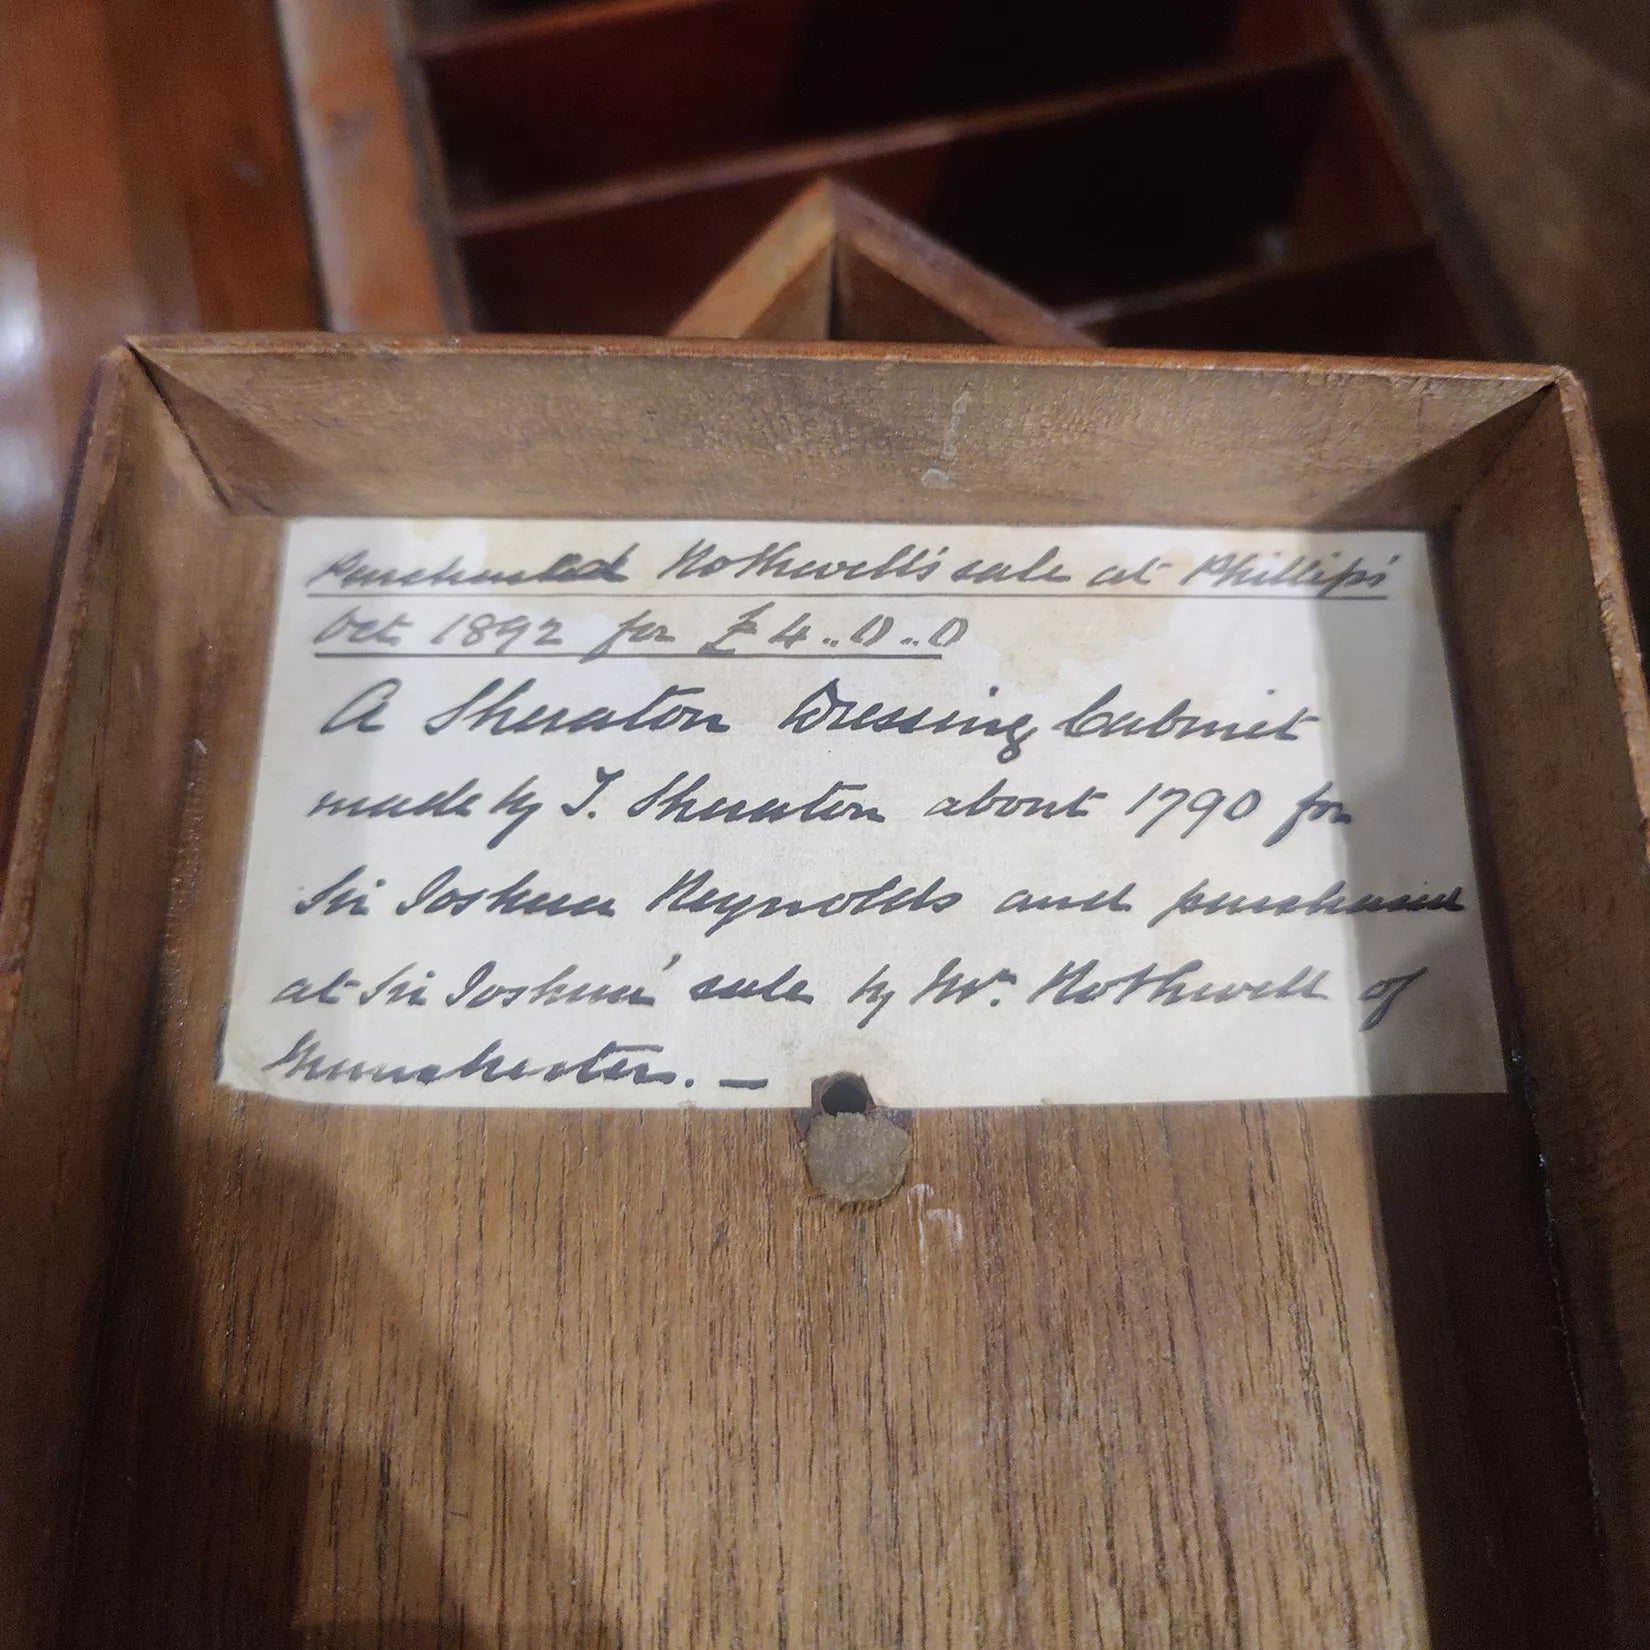 Purchased Rothwell's sale at Phillips'
Oct 1892 for £4..0..0
A Sheraton Dressing Cabinet
made by T. Sheraton about 1790 for
Sir Joshua Reynolds and purchased
at Sir Joshua' sale by Mr. Rothwell of
Manchester. —